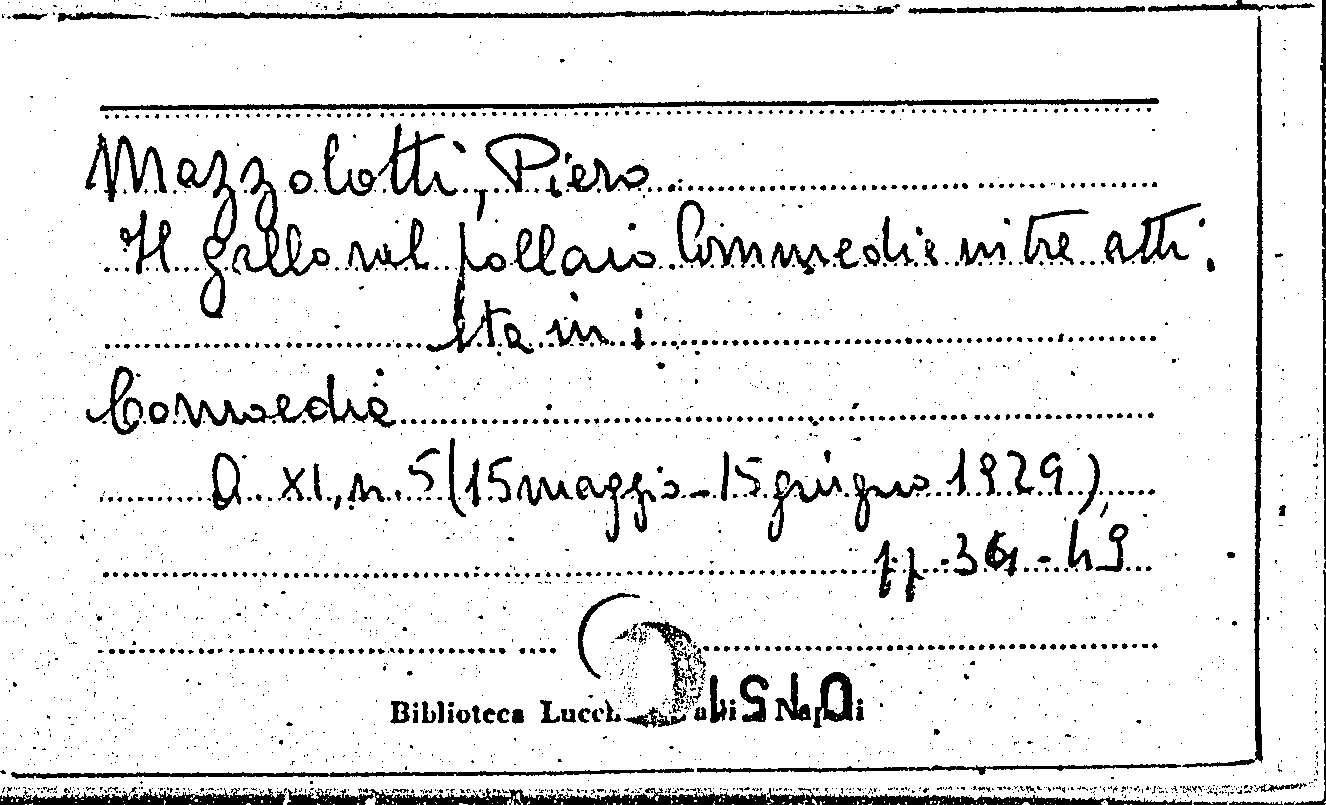 Mazzolotti, Piero
Il gallo nel pollaio. Commedia in tre atti.
Comoedia
A. XI, n. 5 (15 maggio - 15 giugno 1929),
pp. - 49
Biblioteca Napoli